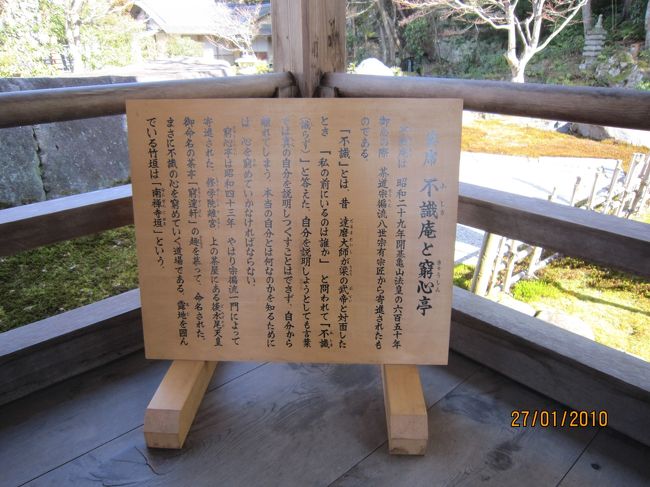 茶席 不識庵と窮心亭
不識庵は 昭和二十九年開基亀山法皇の六百五十年
御忌の際 茶道宗徧流八世宗有宗匠から寄進されたも
のである。
「不識」とは、昔 達磨大師が梁の武帝と対面した
とき 「私の前にいるのは誰か」 と問われて「不識
(識らず)」と答えた。自分を説明しようとしても言葉
では真の自分を説明しつくすことはできず、自分から
離れてしまう。本当の自分とは何なのかを知るために
は、心を窮めていかなければならない。
窮心亭は昭和四十三年 やはり宗徧流一門によって
寄進された。修学院離宮、上の茶屋にある後水尾天皇
御命名の茶亭「窮邃軒」の趣を慕って、命名された。
まさに不識の心を窮めていく道場である。露地を囲ん
でいる竹垣は「南禅寺垣」という。
27/01/2010